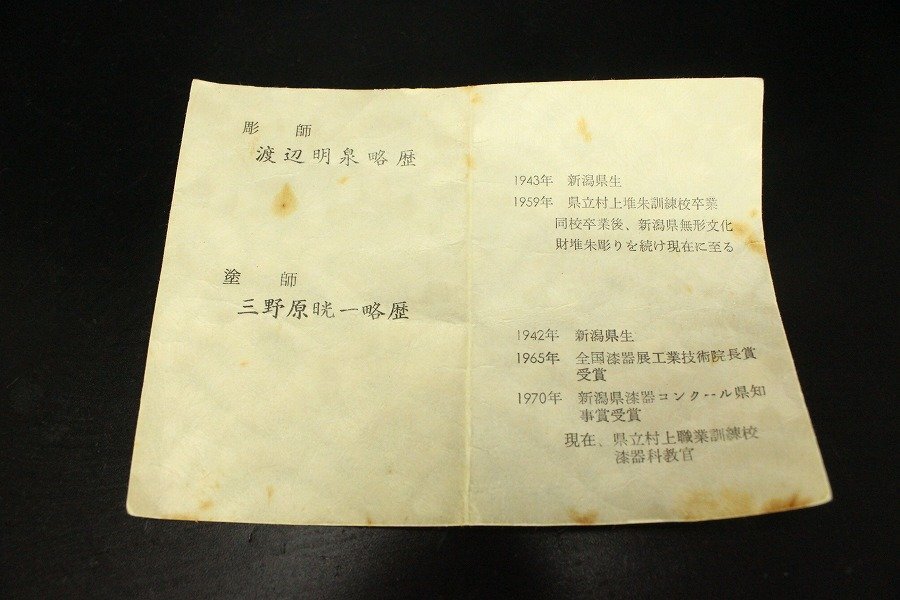 彫　師
渡辺明泉略歴
1943年　新潟県生
1959年　県立村上堆朱訓練校卒業
同校卒業後、新潟県無形文化
財堆朱彫りを続け現在に至る
塗　師
三野原晄一略歴
1942年　新潟県生
1965年　全国漆器展工業技術院長賞
受賞
1970年　新潟県漆器コンクール県知
事賞受賞
現在、県立村上職業訓練校
漆器科教官